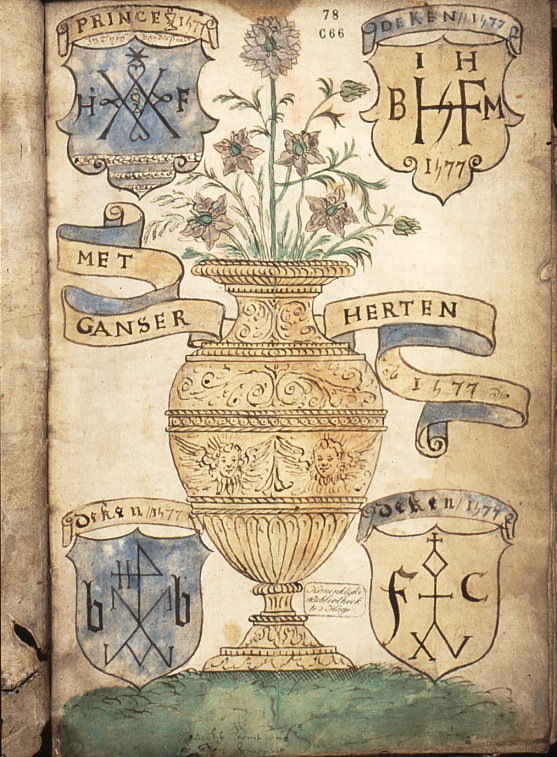 PRINCE 1577
H F
78
C66
DEKEN 1577
I H
B H F M
1577
MET
GANSER
HERTEN
1577
deken / 1577
b b
deken / 1577
f C
Koninklijke
Bibliotheek
te 's Hage.